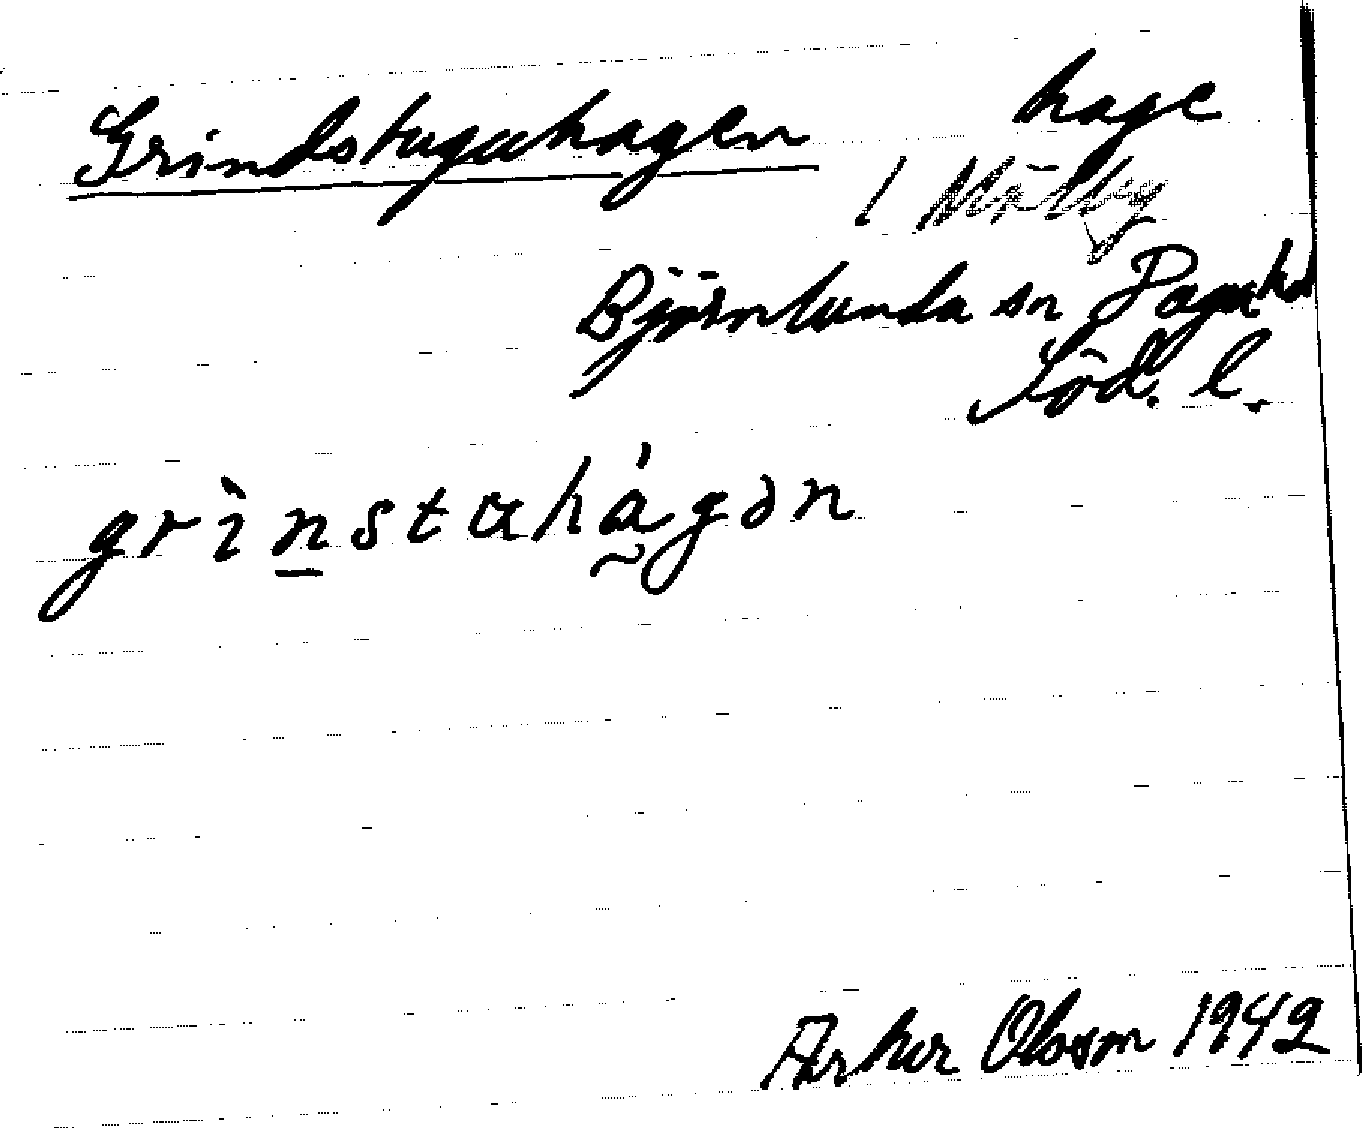 Grindstuguhagen hage
I Mälby
Björnlunda sn Daga hd
Söd. l.
grìnstuhágən
Artur Olsson 1942